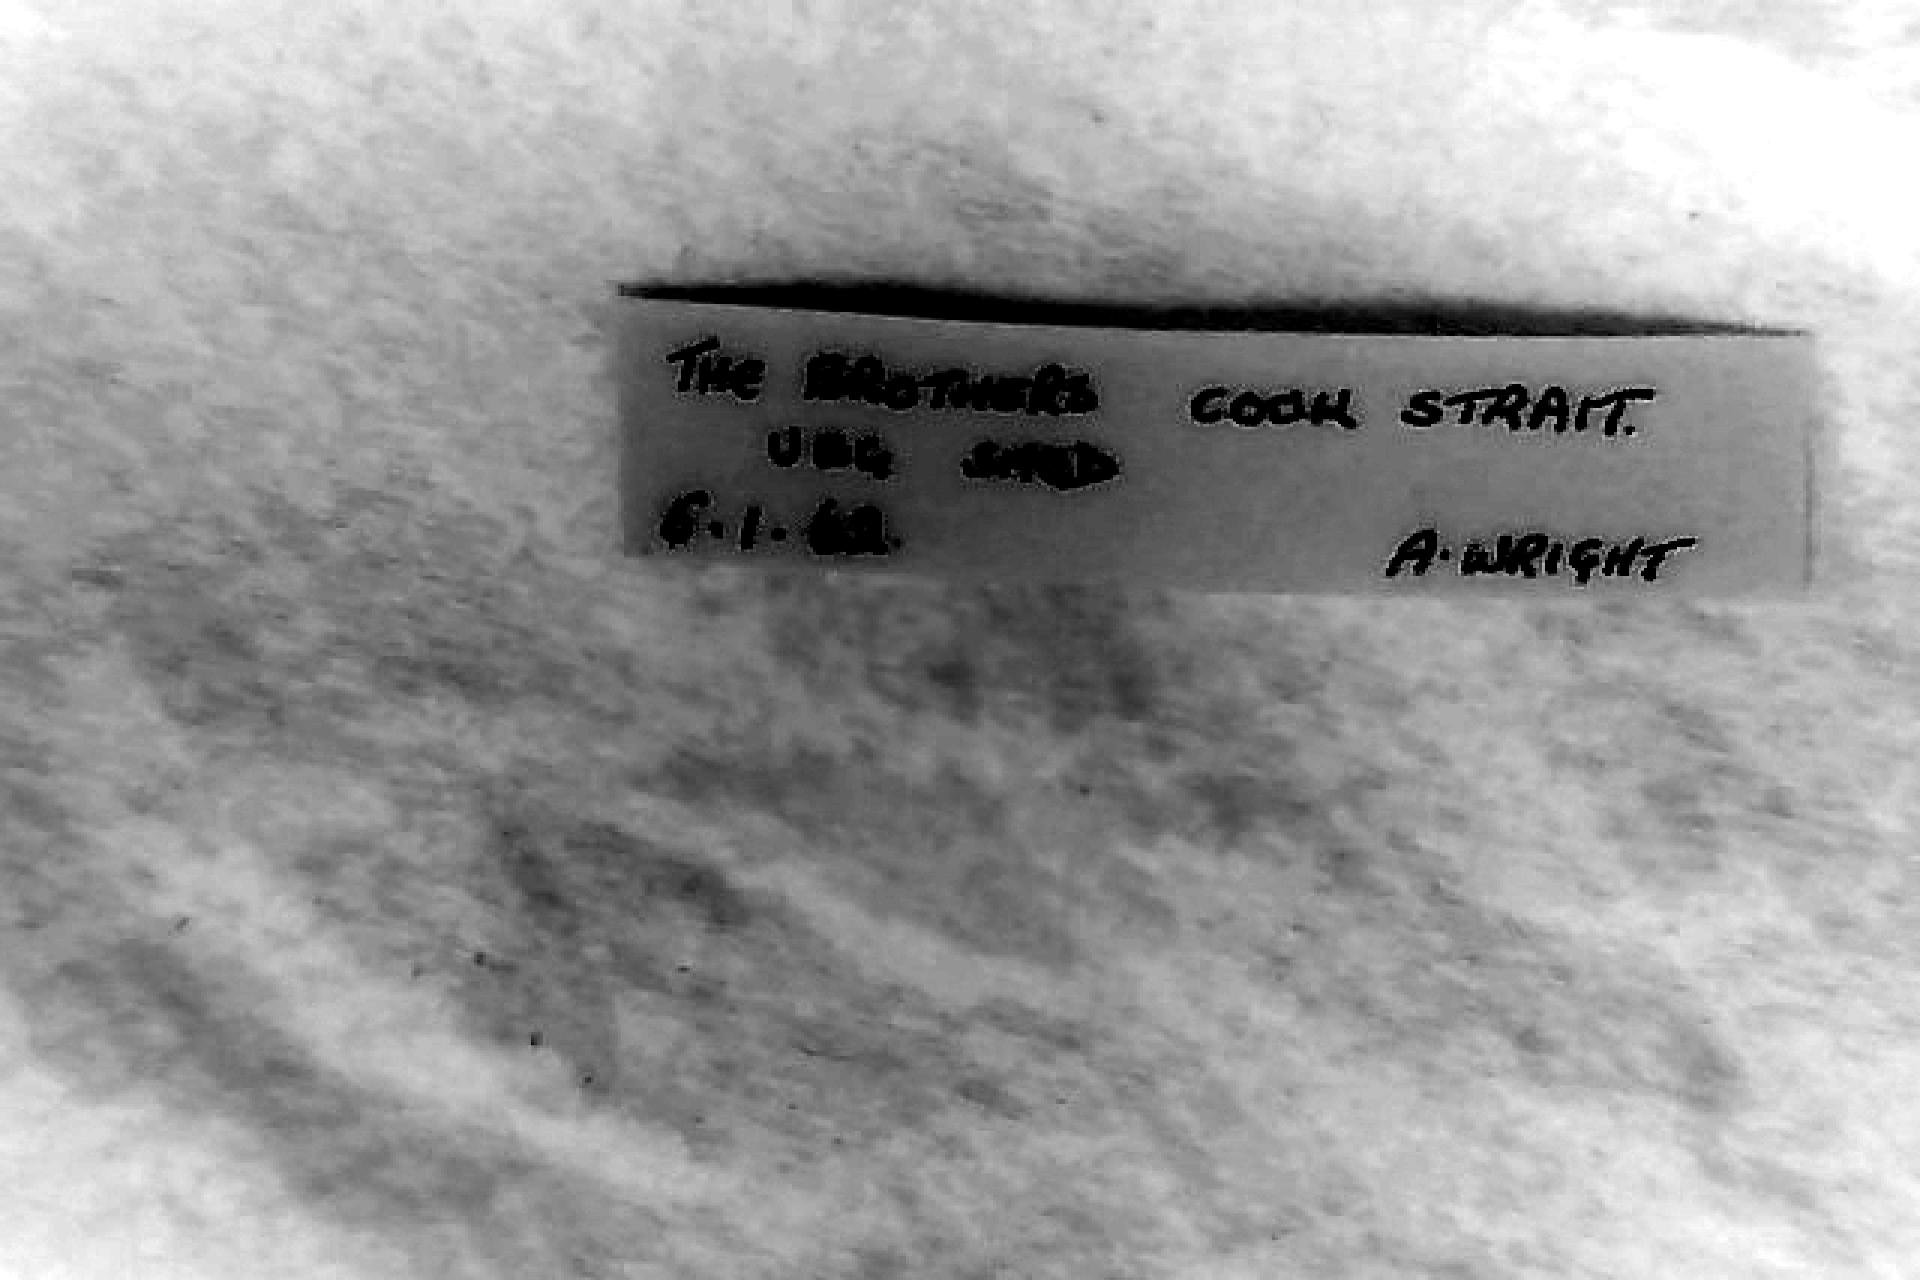 THE BROTHERS COOK STRAIT.
6.1.62.
A. WRIGHT